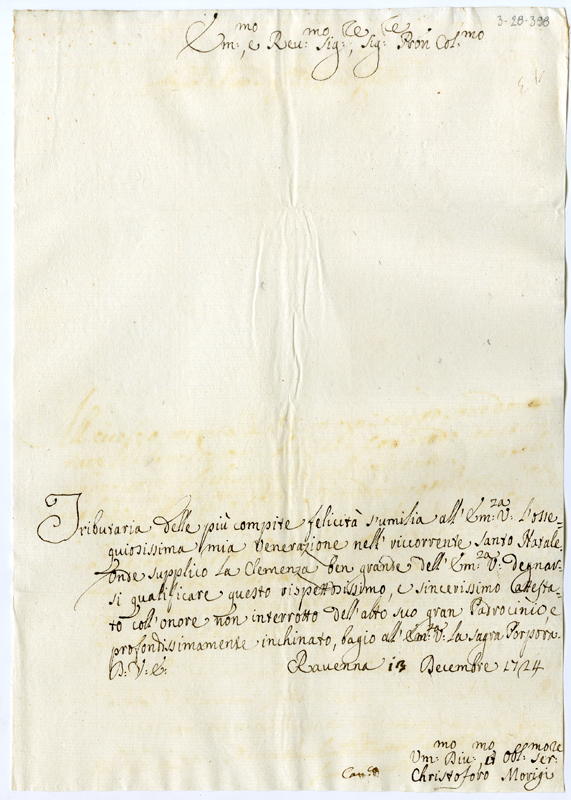 3-28-398
Em:mo, e Reu:mo Sig:re, Sig:re Pron Col:mo
Tributaria delle più compite felicità s'umilia all'Em:za V: l'osse=
quiosissima mia Venerazione nell'riccorrente Santo Natale,
onde supplico la Clemenza ben grande dell'Em:za V: degnar=
si qualificare questo rispettosissimo, e sincerissimo Attesta=
to coll'onore non interrotto dell'alto suo gran Patrocinio, e
profondissimamente inchinato, bagio all'Em:za V: la Sagra Porpora.
D: V: E: Ravenna 13 Decembre 1724
Um:mo Diu:mo Obl: Ser:re
Christoforo Morigi